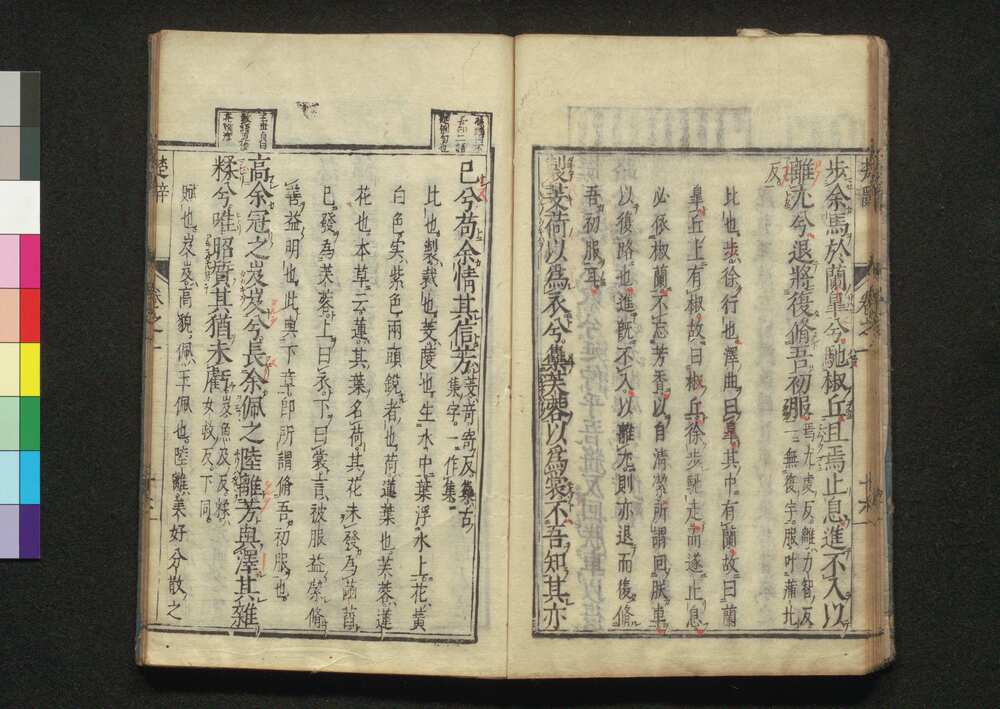 步余馬於蘭皐兮馳椒丘且焉止息進不入以
離尤兮退將復脩吾初服焉尤虔反離力智反
一無復字服叶蒲北
反
比也步徐行也澤曲曰皐其中有蘭故曰蘭
皐丘上有椒故曰椒丘徐步馳走而遂止息
必依椒蘭不忘芳香以自清潔所謂回朕車
以復路也進既不入以離尤則亦退而復脩
吾初服耳
製芰荷以爲衣兮集芙蓉以爲裳不吾知其亦
已兮苟余情其信芳芰奇寄反集古
集字一作集
比也製裁也芰蔆也生水中葉浮水上花黃
白色實紫色兩頭銳者也荷蓮葉也芙蓉蓮
花也本草云蓮其葉名荷其花未發爲菡萏
已發爲芙蓉上曰衣下曰裳言被服益潔脩
善益明也此與下章即所謂脩吾初服也
高余冠之岌岌兮長余佩之陸離芳與澤其雜
糅兮唯昭質其猶未虧岌魚及反糅
女救反下同
賦也岌岌高貌佩玉佩也陸離美好分散之
楚辭
卷之一